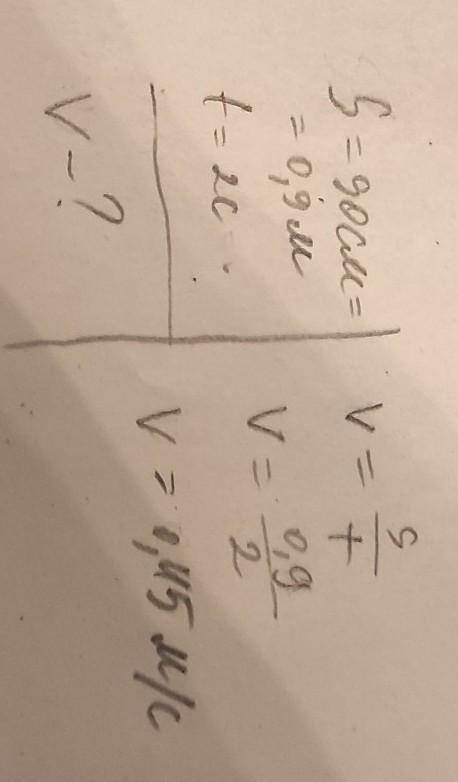 S = 90см =
= 0,9м
t = 2с
V - ?
V = S/t
V = 0,9/2
V = 0,45 м/с